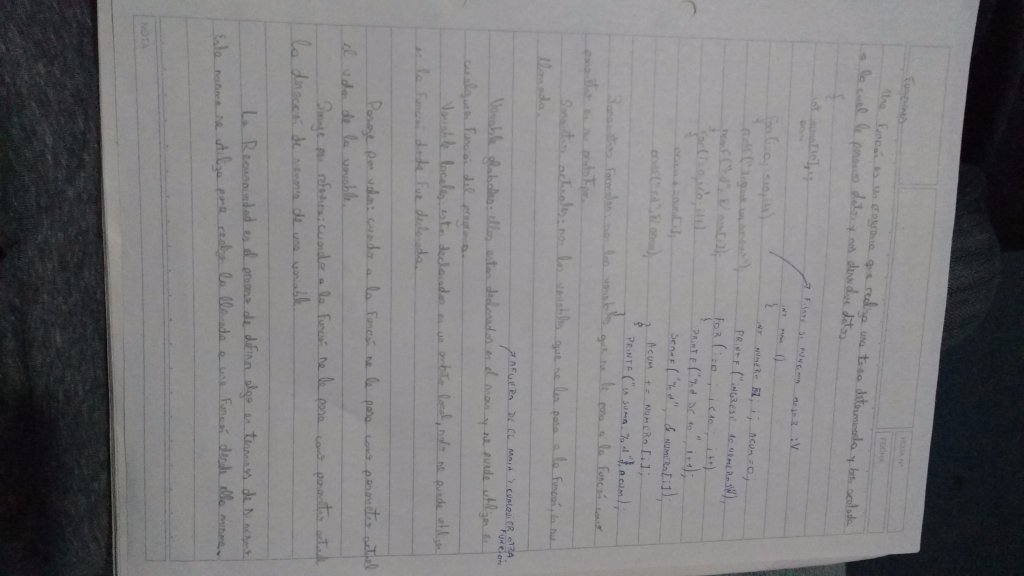 HOJA Nº
FECHA
Funciones
Una Función es un programa que realiza una tarea determinada y bien acotada
a la cual le pasamos datos y nos devuelve datos
{
int [10], i;
→ FIJATE SI FUNCIONA :V
INT MAIN ()
{
INT NUMERO , i, ACUM=0;
PRINTF ("INGRESE 10 NUMEROS\N);
for(i=0, i<10, i++
FOR (i=0 , i<10 , i++)
{
{
printf("Ingrese un numero");
PRINTF ("%d DE 10", i+1);
SCANF ("%d", & NUMERO[i]);
for(i=0, i<10, i++
ACUM += NUMERO [i];
}
PRINTF ("LA SUMA %d", ACUM);
}
Parametros Formales: son las variables que se le pasa a la Función como
parametros en su prototipo.
Parametros actuales: son las variables que se les pasa a la Función, en su
llamada.
→ AFUERA DE EL MAIN Y CUALQUIER OTRA
FUNCION
Variable globales: ellas estan declaradas en el main y se puede utilizar en
cualquier Función del programa.
Variable locales: estan declaradas en un ambito local, solo se puede utilizar
en la Función donde Fue declarada.
Pasaje por valor: cuando a la Función se le pasa como parametro actual
el valor de la variable.
Pasaje por referencia: cuando a la Función se le pasa como parametro actual
la dirección de memoria de una variable.
La Recursividad es el proceso de definir algo en terminos de si mismo
Esta misma se utiliza para realizar la llamada a una Función desde ella misma.
NOTA